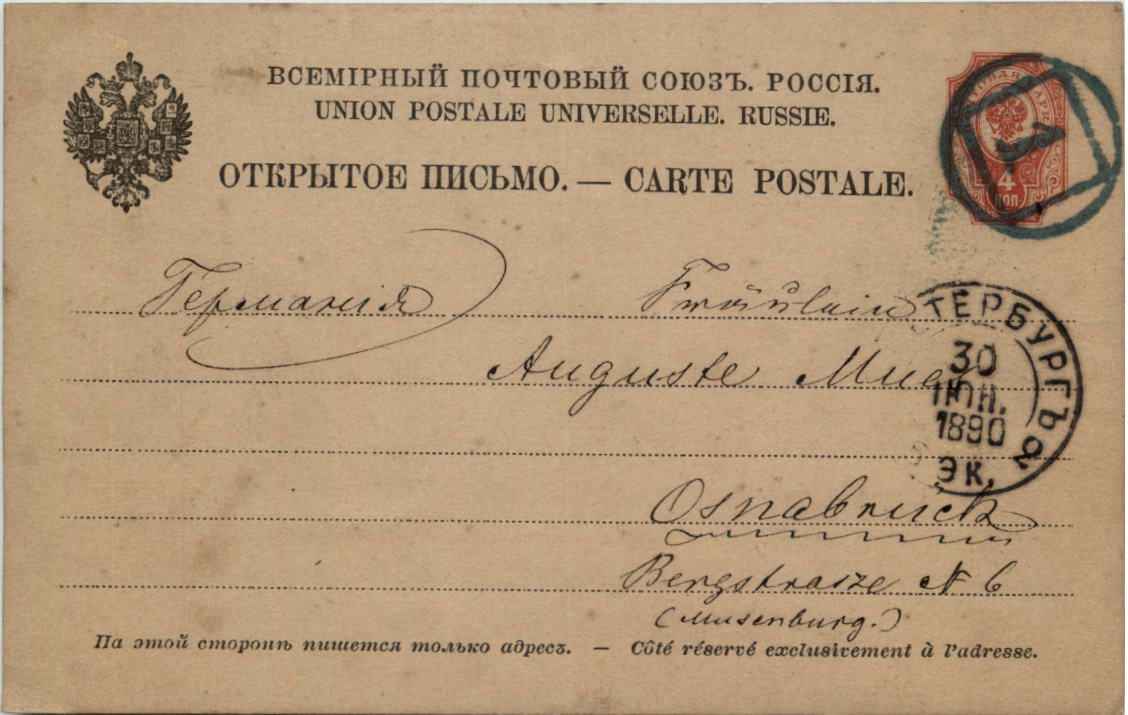 ВСЕМІРНЫЙ ПОЧТОВЫЙ СОЮЗЪ. РОССІЯ.
UNION POSTALE UNIVERSELLE. RUSSIE.
ОТКРЫТОЕ ПИСЬМО. — CARTE POSTALE.
ПОЧТОВАЯ МАРКА
4
КОП
Германія
Fräulein
Auguste
ТЕРБУРГЪ
30
ІЮН.
1890
ЭК.
Osnabrück
Bergstrasze № 6
(Musenburg.)
На этой сторонѣ пишется только адресъ. — Côté réservé exclusivement à l'adresse.